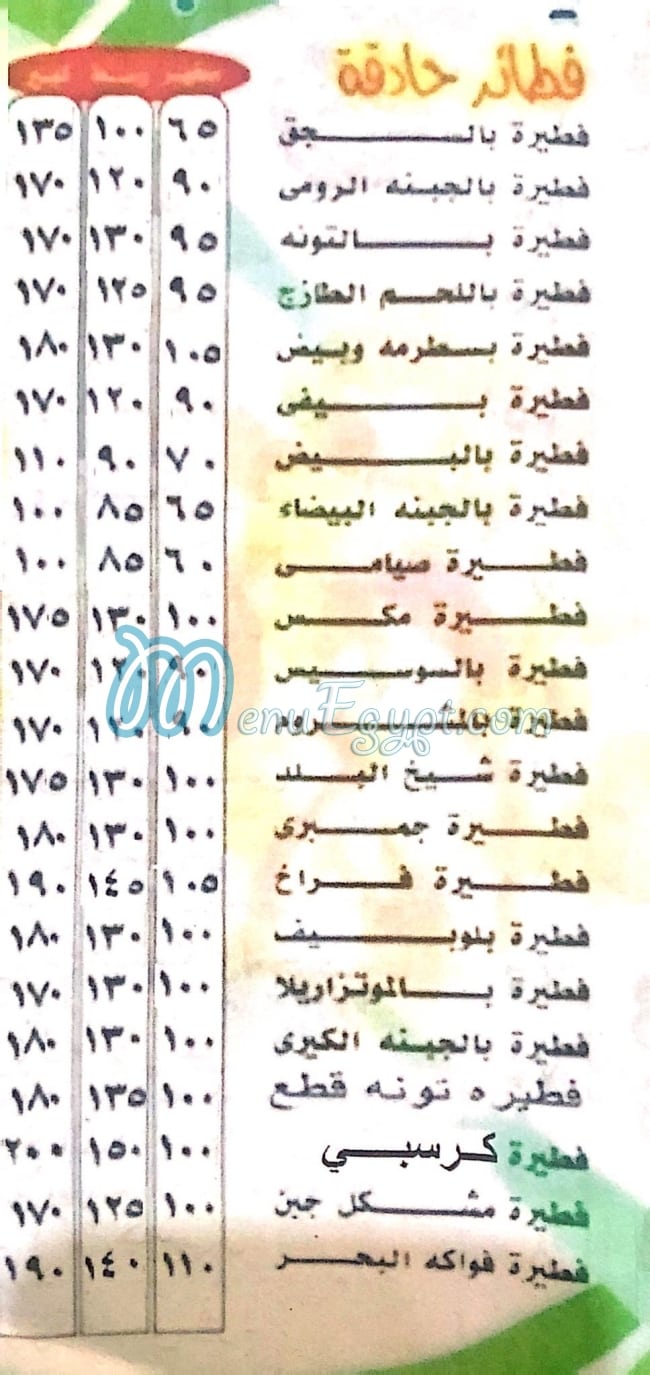 فطائر حادقة
صغير وسط كبير
فطيرة بالسجق ٦٥ ١٠٠ ١٣٥
فطيرة بالجبنه الرومى ٩٠ ١٢٠ ١٧٠
فطيرة بالتونه ٩٥ ١٣٠ ١٧٠
فطيرة باللحم الطازج ٩٥ ١٢٥ ١٧٠
فطيرة بسطرمه وبيض ١٠٥ ١٣٠ ١٨٠
فطيرة بيفى ٩٠ ١٢٠ ١٧٠
فطيرة بالبيض ٧٠ ٩٠ ١١٠
فطيرة بالجبنه البيضاء ٦٥ ٨٥ ١٠٠
فطيرة صيامى ٦٠ ٨٥ ١٠٠
فطيرة مكس ١٠٠ ١٣٠ ١٧٥
فطيرة بالسوسيس ٩٠ ١٢٠ ١٧٠
فطيرة بالشروم ٩٠ ١٢٠ ١٧٠
MenuEgypt.com
فطيرة شيخ البلد ١٠٠ ١٣٠ ١٧٥
فطيرة جمبرى ١٠٠ ١٣٠ ١٨٠
فطيرة فراخ ١٠٥ ١٤٥ ١٩٠
فطيرة بلوبيف ١٠٠ ١٣٠ ١٨٠
فطيرة بالموتزاريلا ١٠٠ ١٣٠ ١٧٠
فطيرة بالجبنه الكيرى ١٠٠ ١٣٠ ١٨٠
فطيره تونه قطع ١٠٠ ١٣٥ ١٨٠
فطيرة كرسبي ١٠٠ ١٥٠ ٢٠٠
فطيرة مشكل جبن ١٠٠ ١٢٥ ١٧٠
فطيرة فواكه البحر ١١٠ ١٤٠ ١٩٠